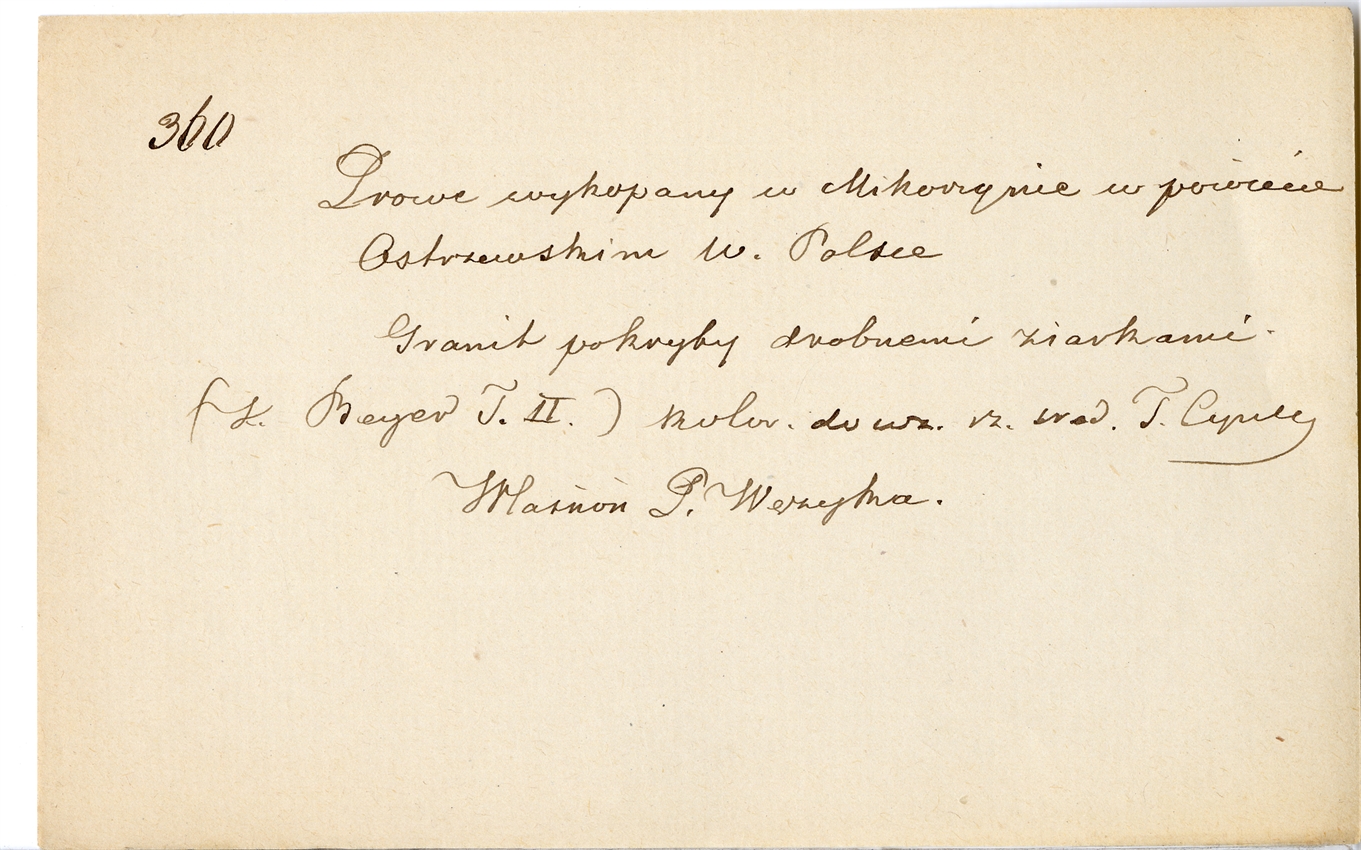 360
Prowe wykopany w Mikorzynie w powiecie
Ostrzewskim W. Polsce
Granit pokryty drobnemi ziarkami.
(L. Beyer T. II.) kolor. do wz. rz.
Własność P. Węrzyka.